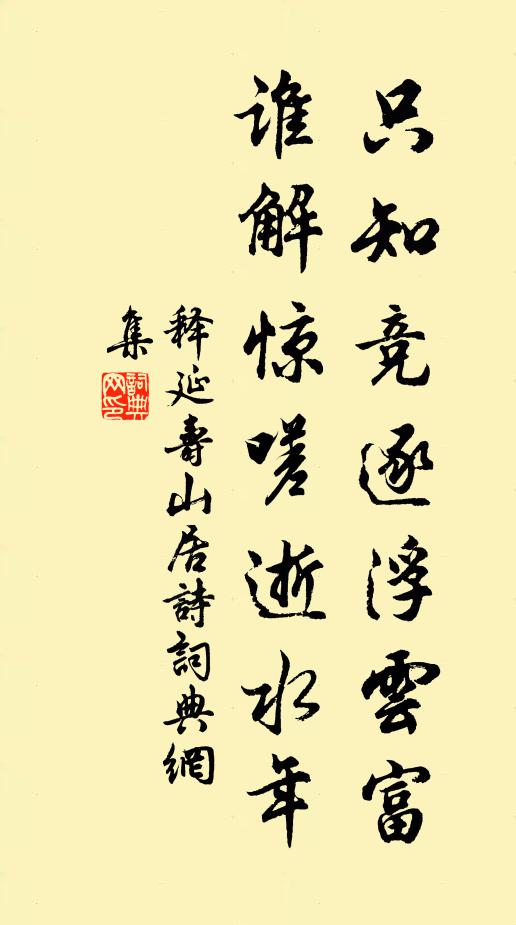 只知竞逐浮雲富
谁解惊嗟逝水年
释延壽山居詩詞典網
集
詞典
网印